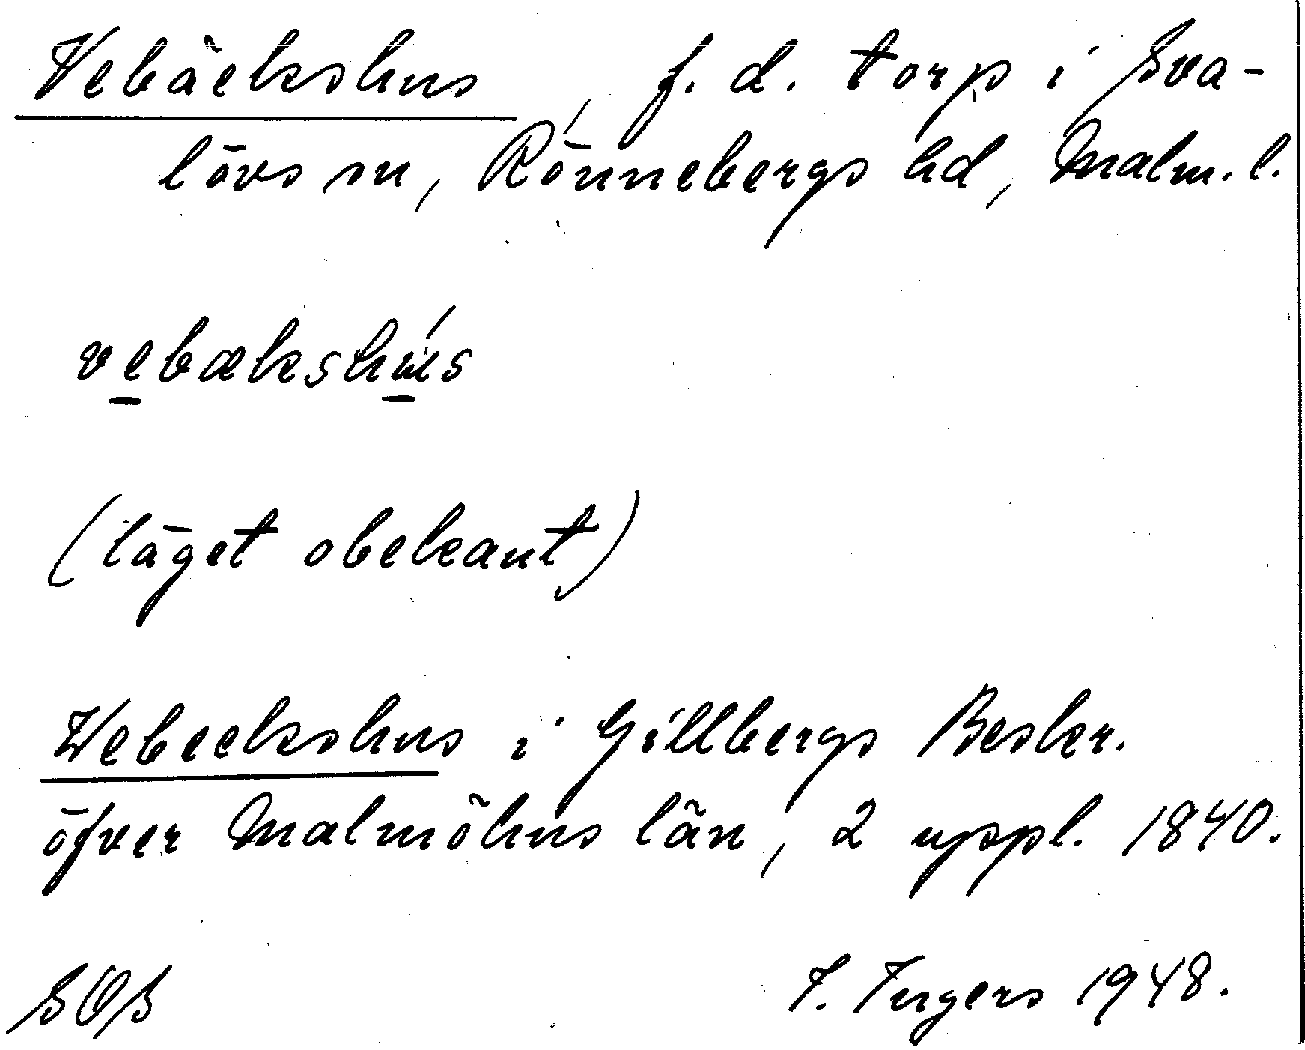 Vebäckshus, f.d. torp i Sva-
lövs sn, Rönnebergs hd, Malm.l.
vebækshús
(läget obekant)
Webeckshus i Gillbergs Beskr.
öfver Malmöhus län, 2 uppl. 1840.
SOS I. Ingers 1948.